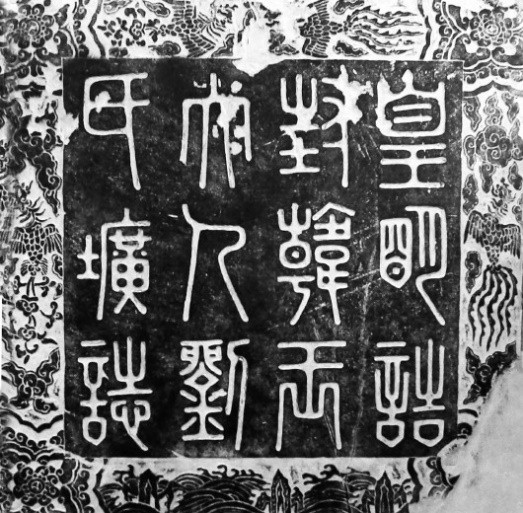 皇明誥
封韓王
夫人劉
氏壙誌